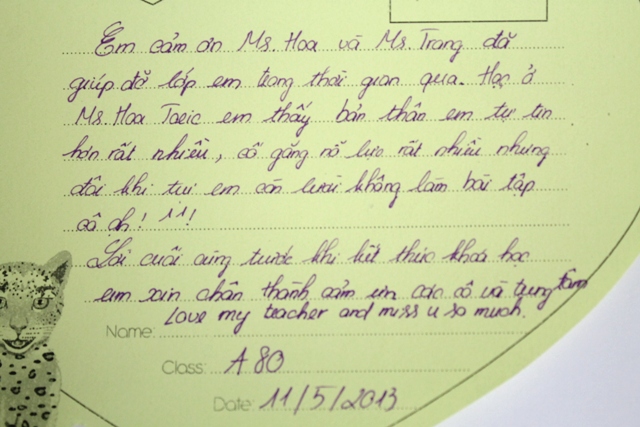 Em cảm ơn Ms. Hoa và Ms. Trang đã
giúp đỡ lớp em trong thời gian qua. Học ở
Ms. Hoa Toeic em thấy bản thân em tự tin
hơn rất nhiều, cố gắng nỗ lực rất nhiều nhưng
đôi khi tụi em còn lười không làm bài tập
cô ạh! !!!
Lời cuối cùng trước khi kết thúc khoá học
em xin chân thành cảm ơn các cô và trung tâm
Love my teacher and miss u so much.
Name:
Class: A 80
Date: 11/5/2013